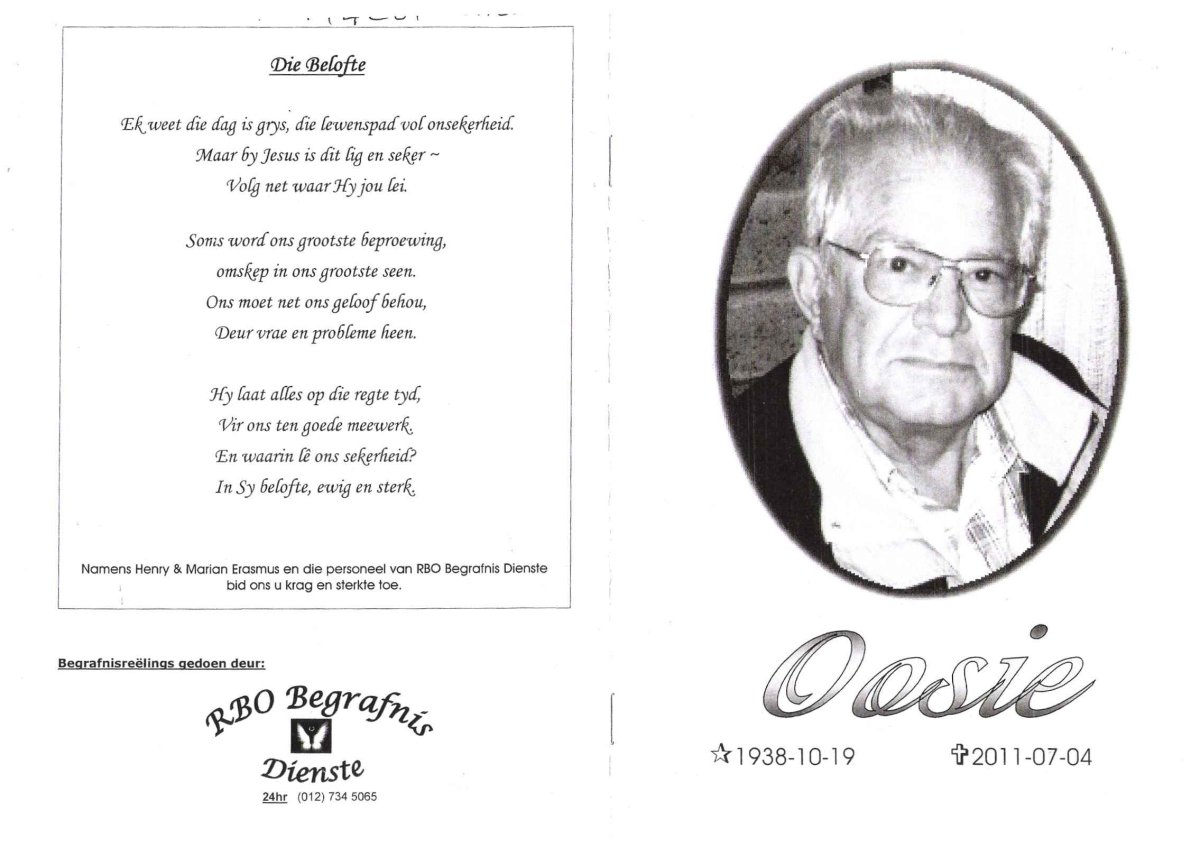 Die Belofte
Ek weet die dag is grys, die lewenspad vol onsekerheid.
Maar by Jesus is dit lig en seker ~
Volg net waar Hy jou lei.
Soms word ons grootste beproewing,
omskep in ons grootste seen.
Ons moet net ons geloof behou,
Deur vrae en probleme heen.
Hy laat alles op die regte tyd,
Vir ons ten goede meewerk.
En waarin lê ons sekerheid?
In Sy belofte, ewig en sterk.
Namens Henry & Marian Erasmus en die personeel van RBO Begrafnis Dienste
bid ons u krag en sterkte toe.
Begrafnisreëlings gedoen deur:
RBO Begrafnis
Dienste
24hr (012) 734 5065
Oosie
☆1938-10-19 ✞2011-07-04